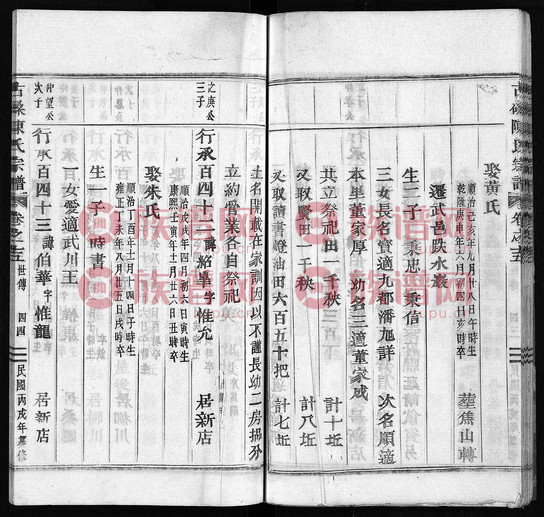 古磉陳氏宗譜 卷之五
娶黃氏
順治己亥年九月十八日午時生
乾隆庚申年六月初四日亥時卒
墓焦山轉
遷武邑跌水巖
生二子 秉忠 秉信
三女長名寶適九都潘旭詳 次名順適
本里董家厚 幼名三適董家成
共立祭祀田一千秧 計十坵
又取贤田一千秧 計八坵
又取讀書燈油田六百五十把 計七坵
土名開載在家訓因以不謹長幼二房擅分
立約當業各自祭祀
之庚公
三子
行承百四十二 諱紹畢 字惟允 居新店
順治戊戌年四月初六日寅時生
康熙壬寅年十二月廿六日寅時卒
娶朱氏
順治丁酉年十二月十四日子時生
雍正丁未年八月廿五日戌時卒
生一子 時書
女愛適武川王
仲望公
次子
行承百四十三 諱伯華 字惟龍 居新店
古磉陳氏宗譜 卷之五 世傳 四四 民國丙戌年重修
族谱网
族谱网
族谱网
族谱网